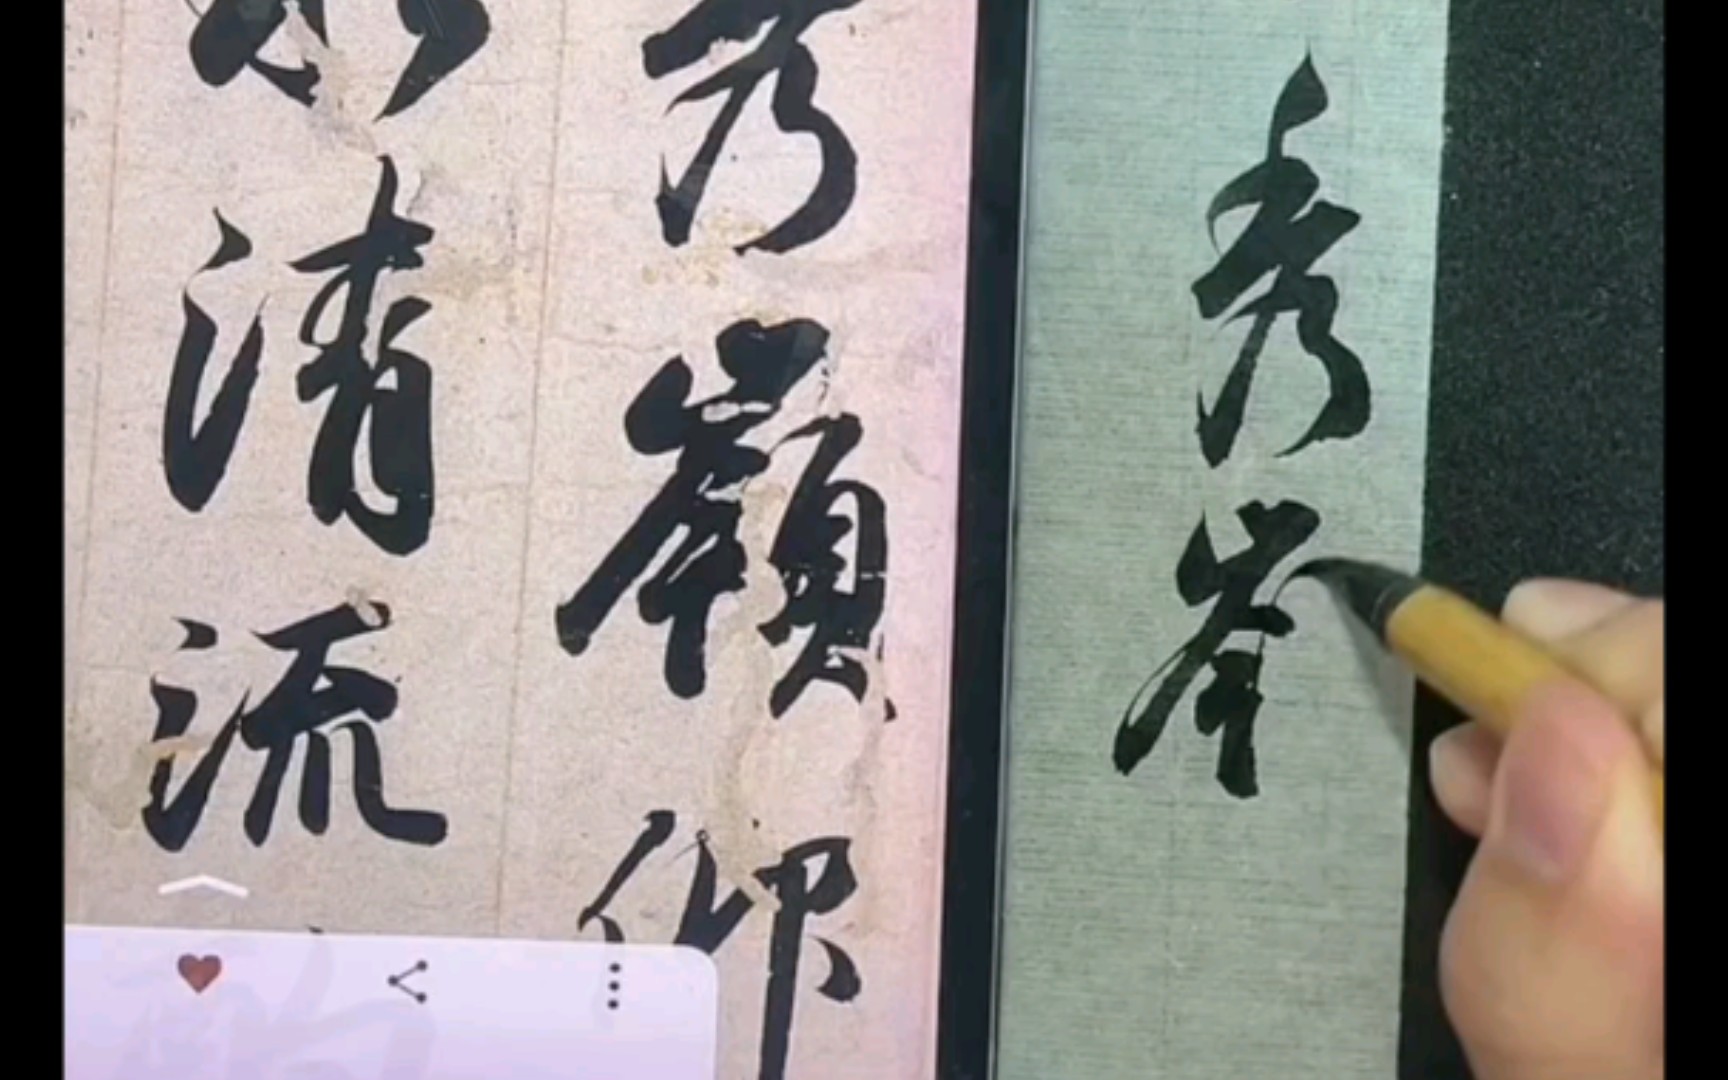 秀
秀嶺仰
清流